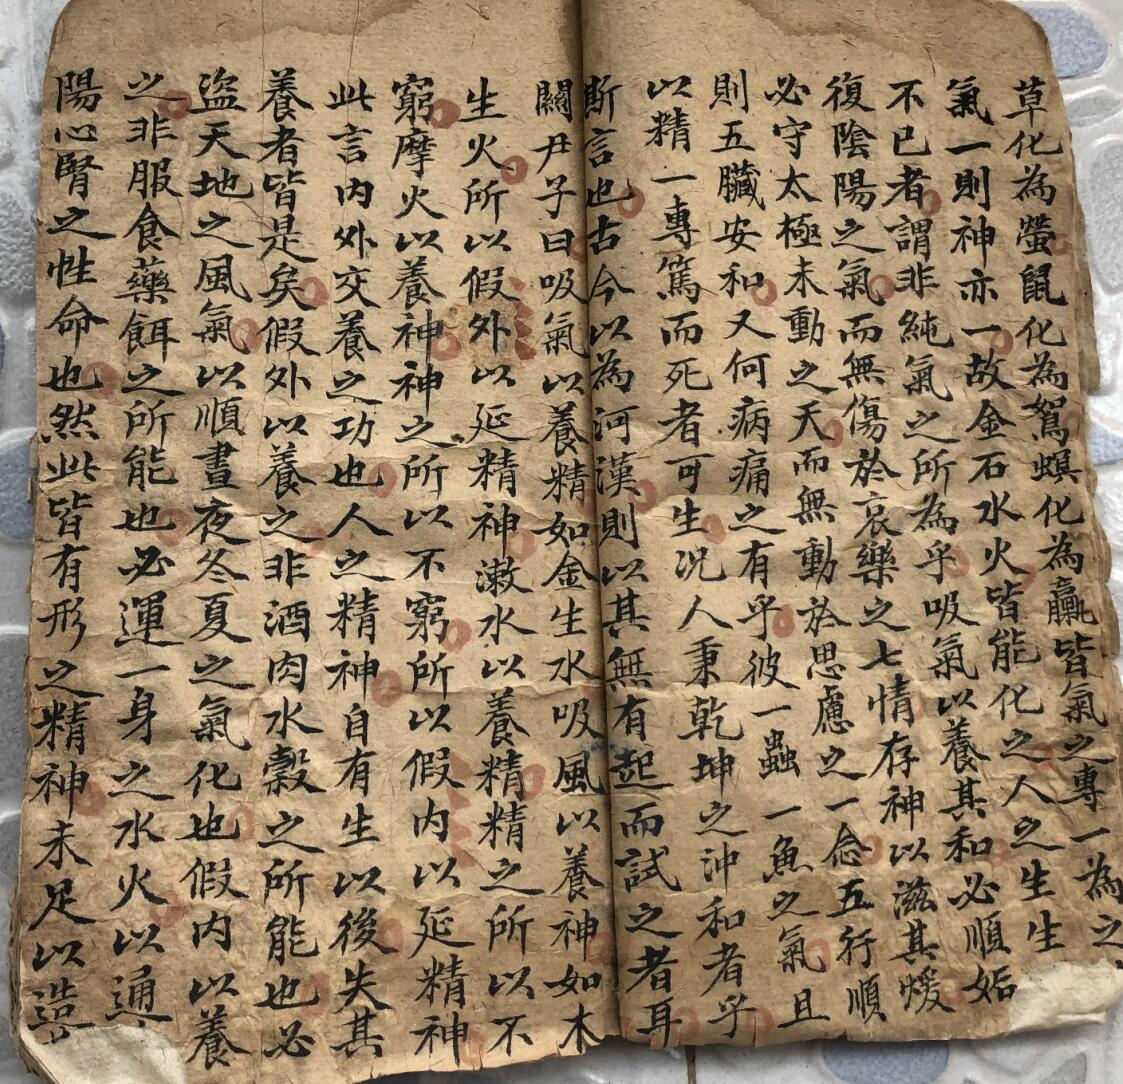 草化為螢鼠化為鴽螟化為蠃皆氣之專一為之
氣一則神亦一故金石水火皆能化之人之生生
不已者謂非純氣之所為乎吸氣以養其和必順姤
復陰陽之氣而無傷於哀樂之七情存神以滋其煖
必守太極未動之天而無動於思慮之一念五行順
則五臟安和又何病痛之有乎彼一蟲一魚之氣且
以精一專篤而死者可生况人秉乾坤之沖和者乎
断言也古今以為河漢則以其無有起而試之者耳
關尹子曰吸氣以養精如金生水吸風以養神如木
生火所以假外以延精神漱水以養精精之所以不
窮摩火以養神神之所以不窮所以假内以延精神
此言内外交養之功也人之精神自有生以後失其
養者皆是矣假外以養之非酒肉水穀之所能也必
盜天地之風氣以順晝夜冬夏之氣化也假内以養
之非服食藥餌之所能也必運一身之水火以通
陽心腎之性命也然此皆有形之精神未足以造